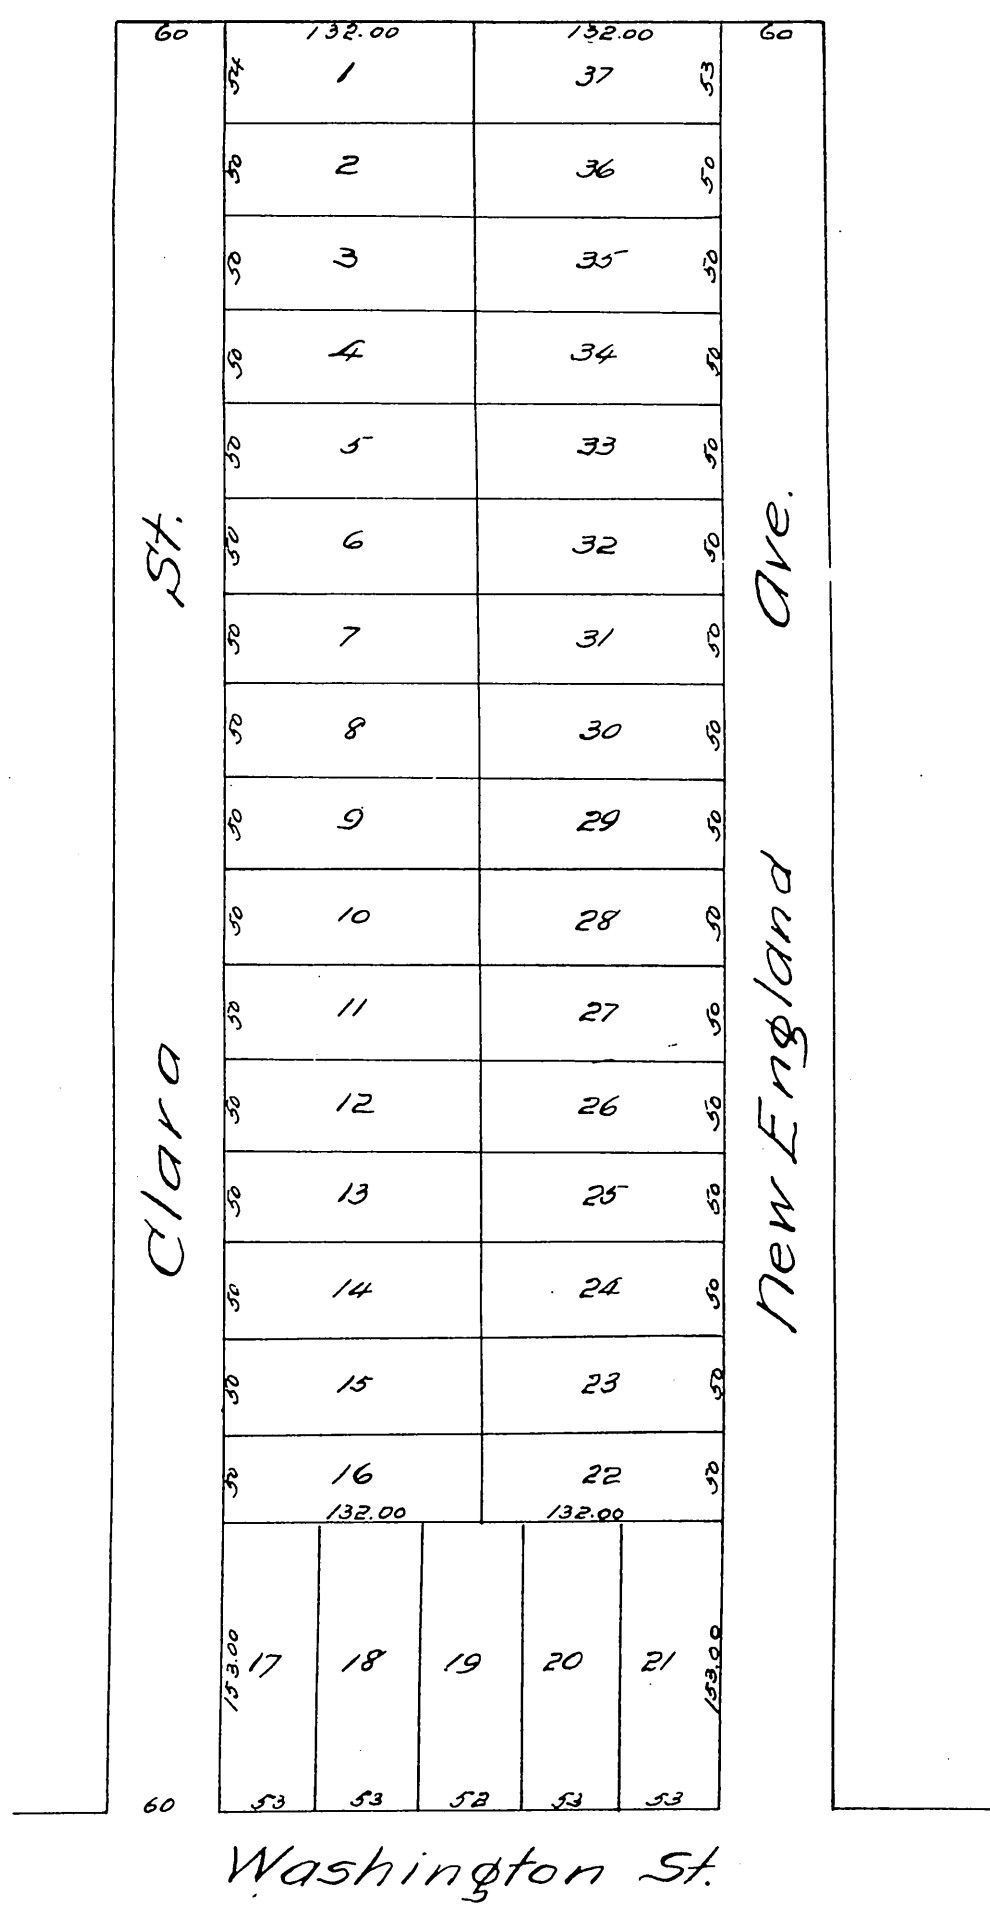 60 132.00 132.00 60
54 1 37 53
50 2 36 50
50 3 35 50
50 4 34 50
50 5 33 50
50 6 32 50
50 7 31 50
50 8 30 50
50 9 29 50
50 10 28 50
50 11 27 50
50 12 26 50
50 13 25 50
50 14 24 50
50 15 23 50
50 16 22 50
132.00 132.00
153.00 17 18 19 20 21 153.00
60 53 53 52 53 53
Clara St.
New England Ave.
Washington St.